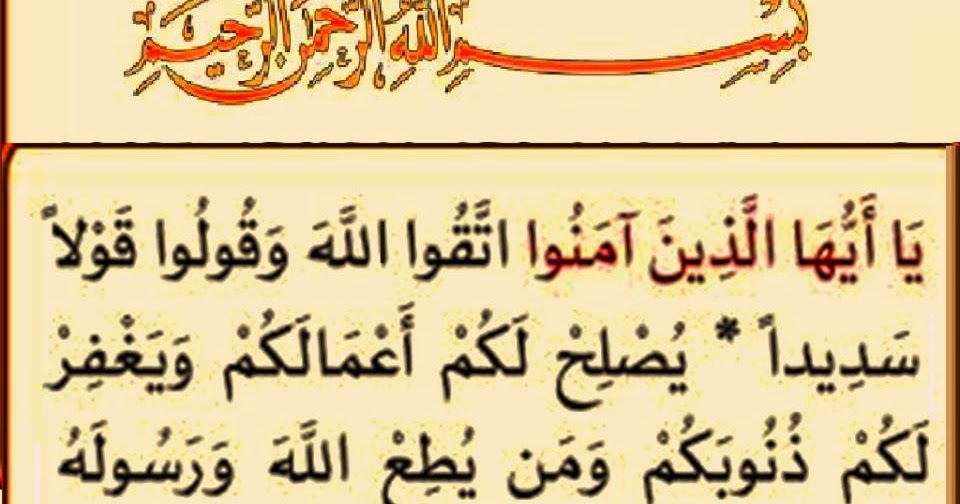 بِسْمِ اللَّهِ الرَّحْمَنِ الرَّحِيمِ
يَا أَيُّهَا الَّذِينَ آمَنُوا اتَّقُوا اللَّهَ وَقُولُوا قَوْلاً
سَدِيداً * يُصْلِحْ لَكُمْ أَعْمَالَكُمْ وَيَغْفِرْ
لَكُمْ ذُنُوبَكُمْ وَمَن يُطِعْ اللَّهَ وَرَسُولَهُ